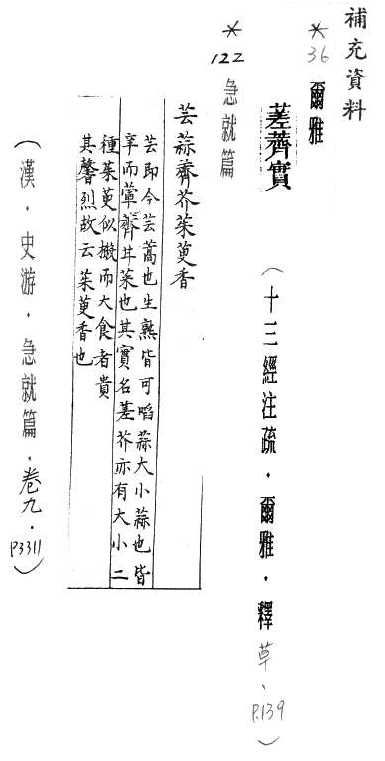 補充資料
* 36 爾雅
蒫薺實
（十三經注疏．爾雅．釋草、P.139）
* 122 急就篇
芸蒜薺芥茱萸香
芸即今芸蒿也生熟皆可啗蒜大小蒜也皆
辛而葷薺甘菜也其實名蒫芥亦有大小二
種茱萸似樧而大食者貴
其馨烈故云茱萸香也
（漢．史游．急就篇．卷九．P3311）